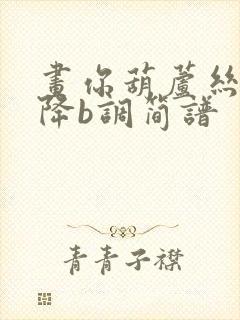 畫你葫蘆絲
降b調簡譜
青青子襟